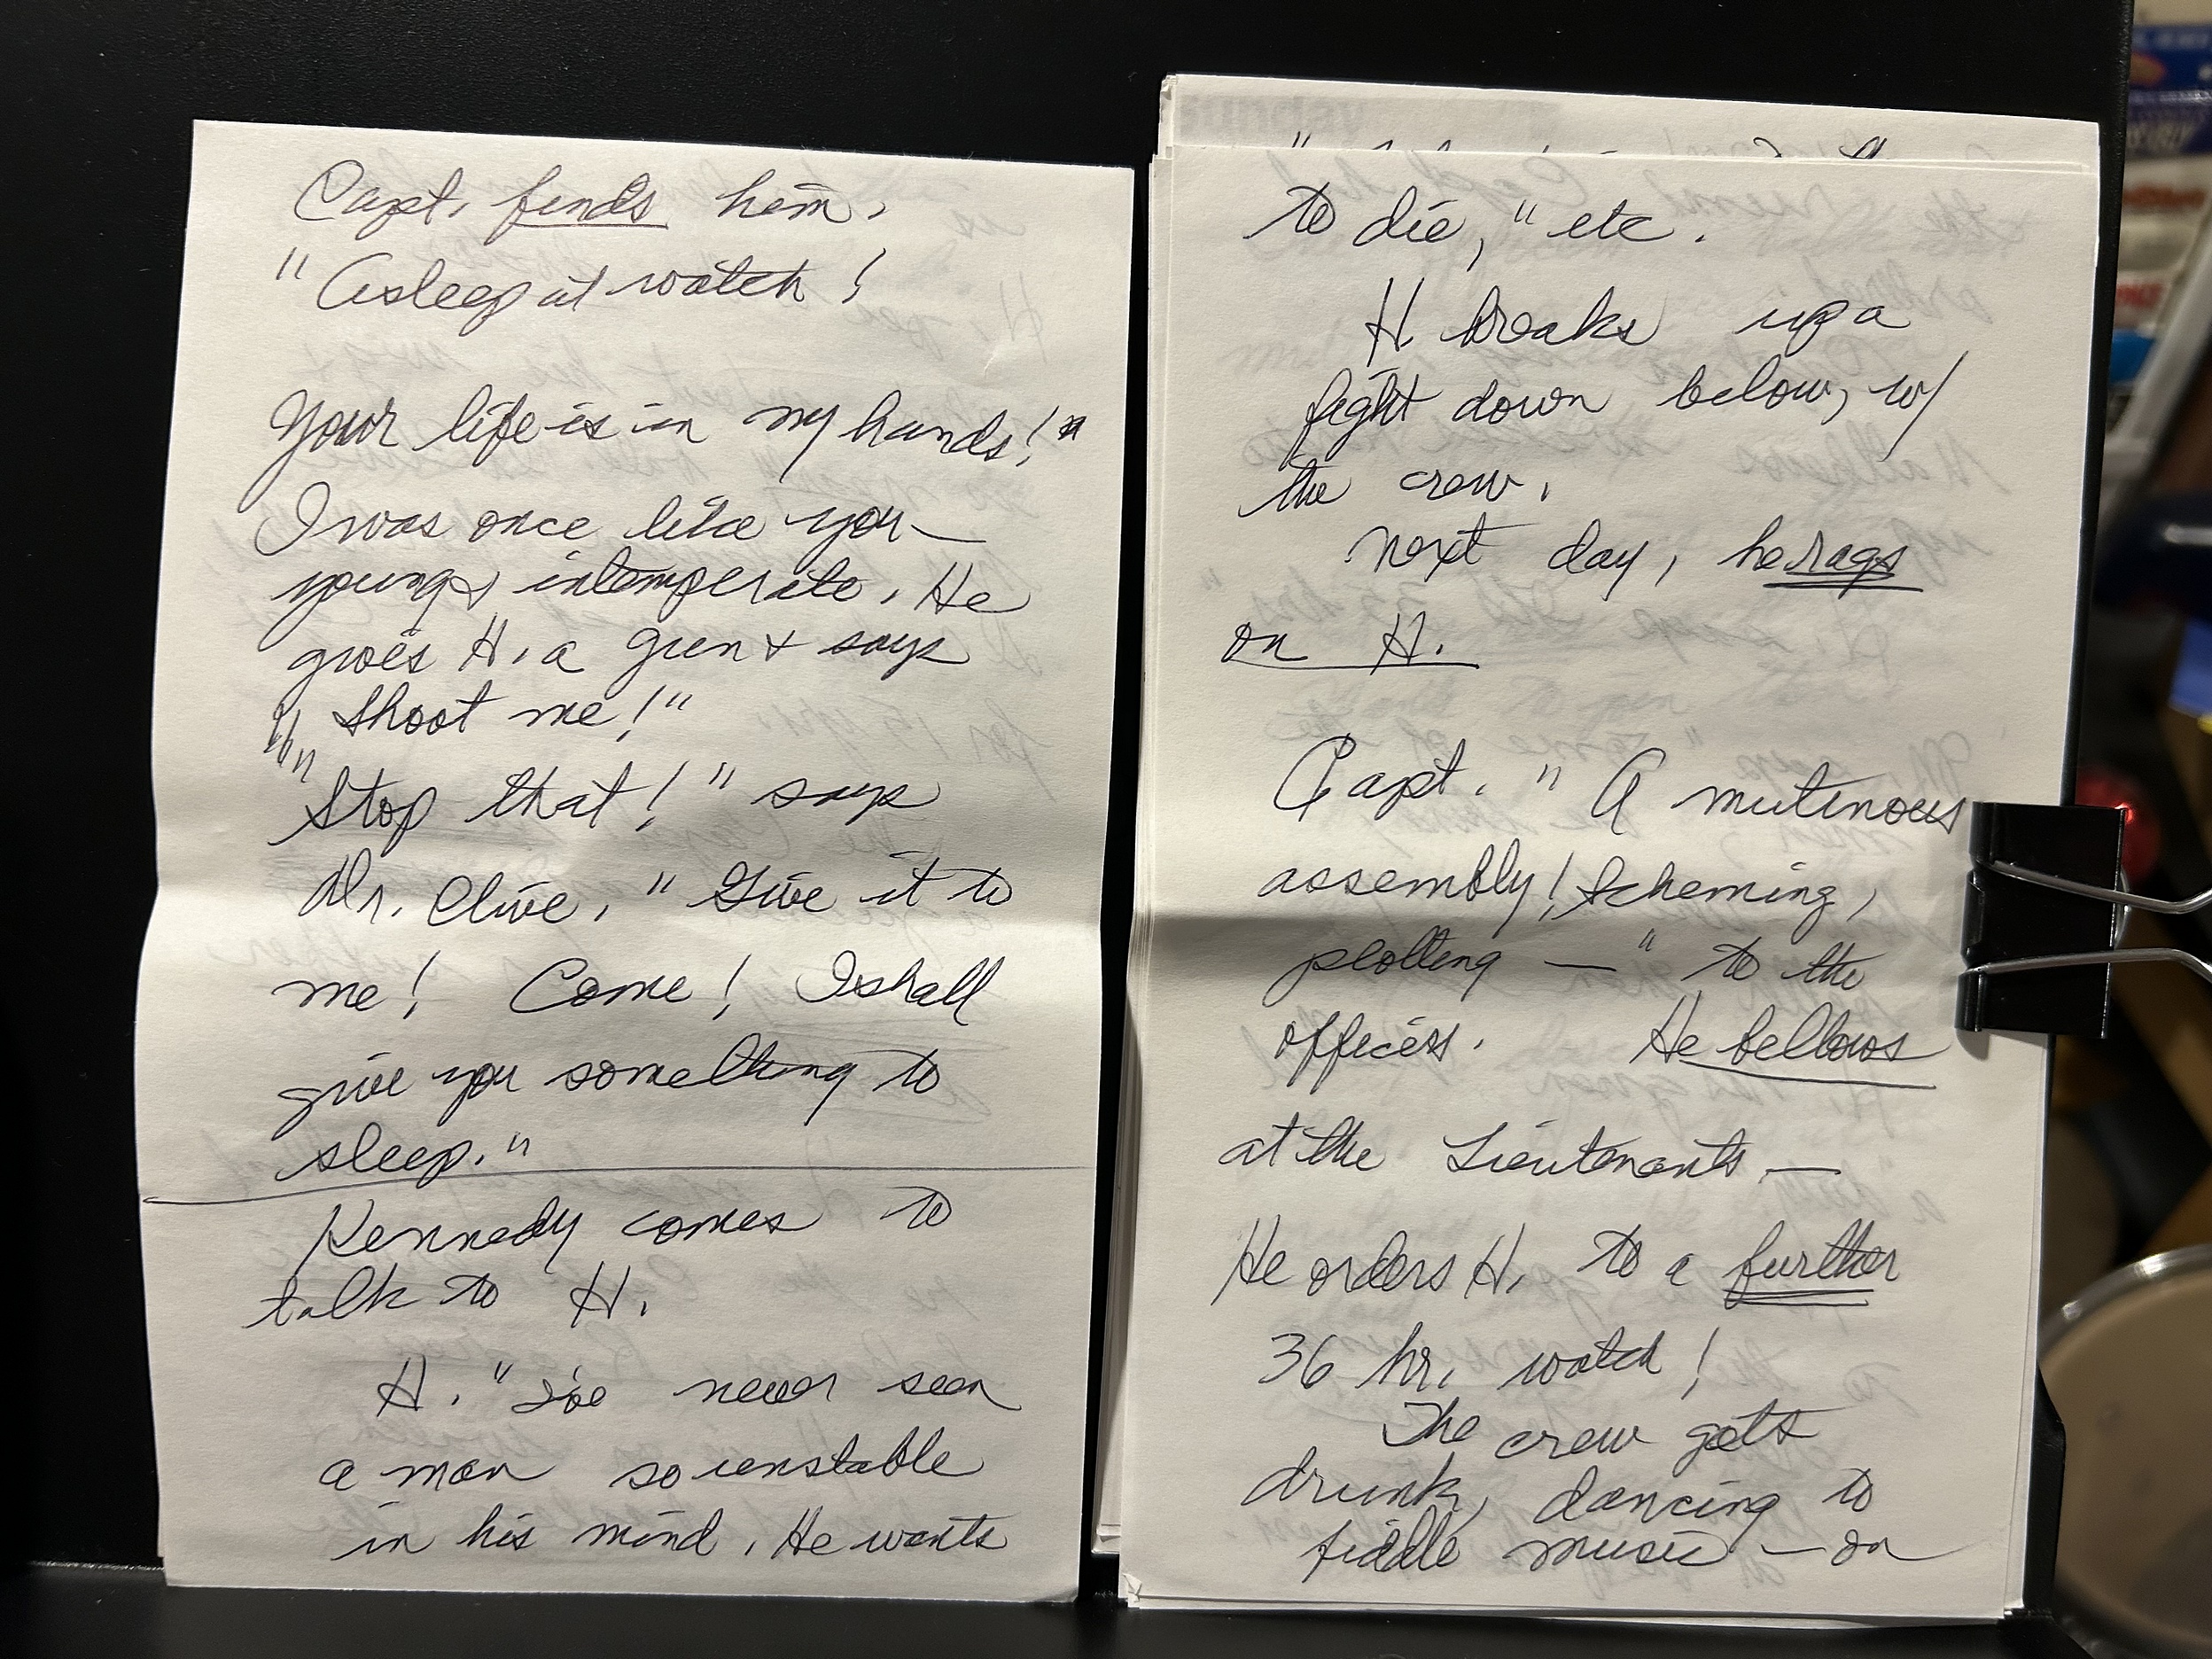 Capt. finds him.
"Asleep at watch!
Your life is in my hands!"
I was once like you—
young, intemperate. He
gives H. a gun & says
"Shoot me!"
"Stop that!" says
Dr. Clive. "Give it to
me! Come! I shall
give you something to
sleep."
Kennedy comes to
talk to H.
H. "I've never seen
a man so unstable
in his mind. He wants
Sunday
to die," etc.
H. breaks up a
fight down below, w/
the crew.
Next day, he rags
on H.
Capt. "A mutinous
assembly! Scheming,
plotting —" to the
officers. He bellows
at the Lieutenants —
He orders H. to a further
36 hr. watch!
The crew gets
drunk, dancing to
fiddle music — on